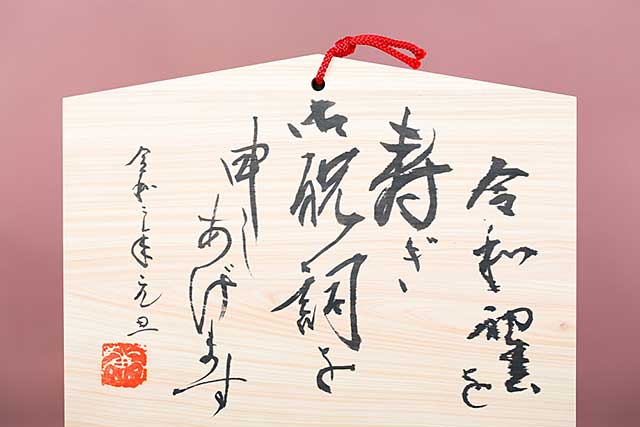 令和初春を
寿ぎ
御祝詞を
申しあげます
令和二年元旦